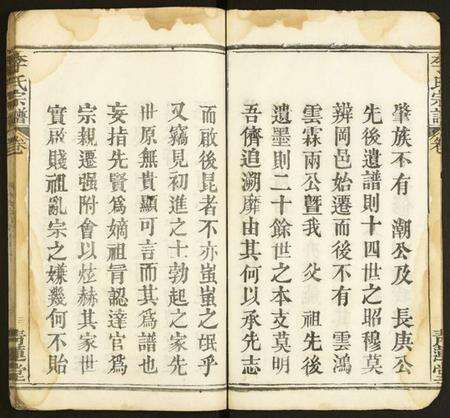 李氏宗譜
卷
肇族不有 潮公及 長庚公
先後遺譜則十四世之昭穆莫
辨岡邑始遷而後不有 雲鴻
雲霖兩公暨我 父 祖先後
遺墨則二十餘世之本支莫明
吾儕追溯靡由其何以承先志
而啟後昆者不亦蚩蚩之氓乎
又竊見初進之士勃起之家先
世原無貴顯可言而其爲譜也
妄指先賢爲嫡祖冒認達官爲
宗親遷强附會以炫赫其家世
實啟賤祖亂宗之嫌幾何不貽
李氏宗譜
卷
青蓮堂